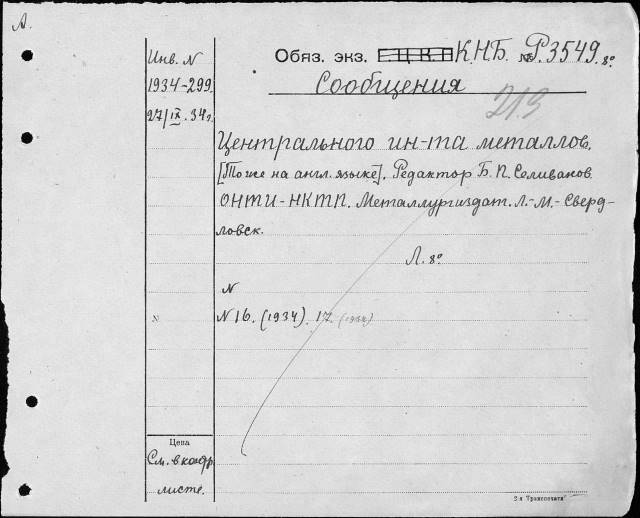 А.
Инв. N
1934-299.
27/IX. 34г.
Обяз. экз. Г.Ц.К.П К.Н.Б. № Р.3549.8°
Сообщения
213
Центрального ин-та металлов.
[То же на англ. языке]. Редактор Б. П. Селиванов.
ОНТИ-НКТП. Металлургиздат. Л.-М.-Сверд-
ловск.
Л. 8°
N
N
N 16. (1934). 17. (1934)
Цена
См. в контр.
листе.
2-я „Транспечати"